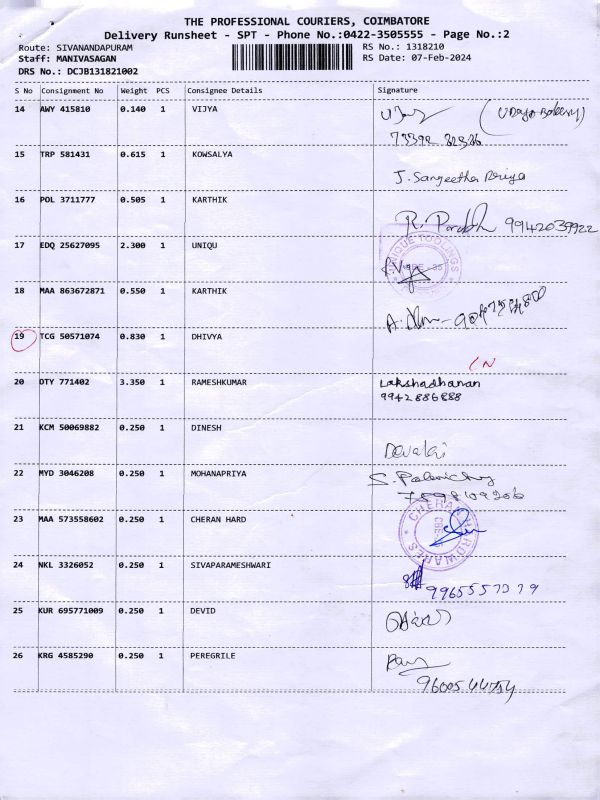 THE PROFESSIONAL COURIERS, COIMBATORE
Delivery Runsheet - SPT - Phone No.:0422-3505555 - Page No.:2
Route: SIVANANDAPURAM RS No.: 1318210
Staff: MANIVASAGAN RS Date: 07-Feb-2024
DRS No.: DCJB131821002
S No Consignment No Weight PCS Consignee Details Signature
14 AWY 415810 0.140 1 VIJYA
15 TRP 581431 0.615 1 KOWSALYA
J. Sangeetha Priya
16 POL 3711777 0.505 1 KARTHIK
9942039922
17 EDQ 25627095 2.300 1 UNIQU
UNIQUE TOOLINGS
18 MAA 863672871 0.550 1 KARTHIK
19 TCG 50571074 0.830 1 DHIVYA
20 OTY 771402 3.350 1 RAMESHKUMAR Lakshadhanan
9942886888
21 KCM 50069882 0.250 1 DINESH
22 MYD 3046208 0.250 1 MOHANAPRIYA
23 MAA 573558602 0.250 1 CHERAN HARD
CHERAN HARDWARES
24 NKL 3326052 0.250 1 SIVAPARAMESHWARI
25 KUR 695771009 0.250 1 DEVID
26 KRG 4585290 0.250 1 PEREGRILE